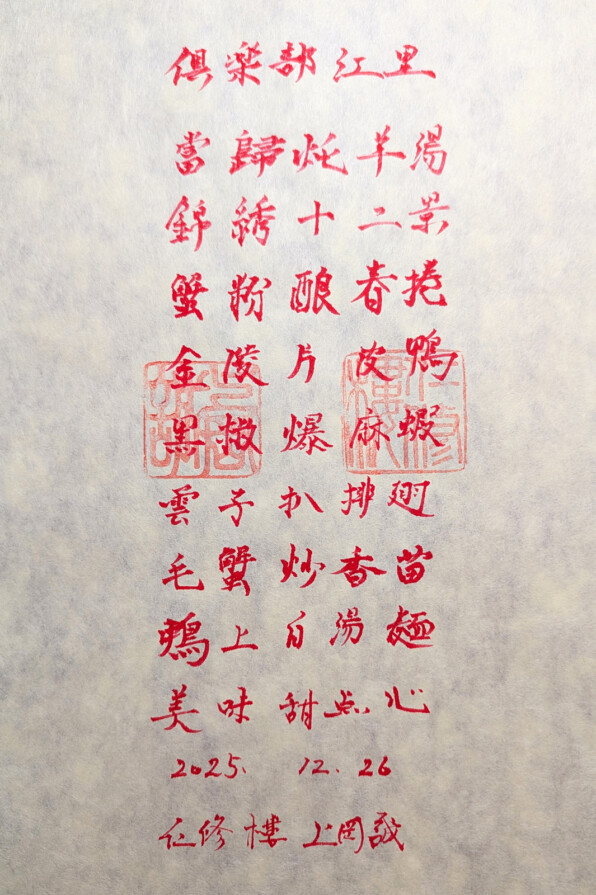 俱楽部 江里
當歸炖羊湯
錦綉十二景
蟹粉酿春捲
金陵片皮鴨
黑椒爆麻蝦
雲子扒排翅
毛蟹炒香苗
鴨上白湯麵
美味甜点心
2025. 12. 26
仁修樓 上岡誠